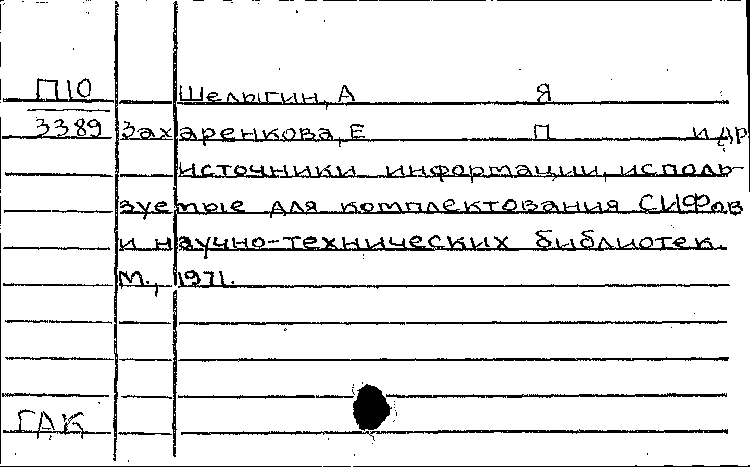 П10 Шелыгин, А Я
3389 Захаренкова, Е П и др
источники информации, исполь-
зуемые для комплектования СИФов
и научно-технических библиотек.
М., 1971.
ГАК